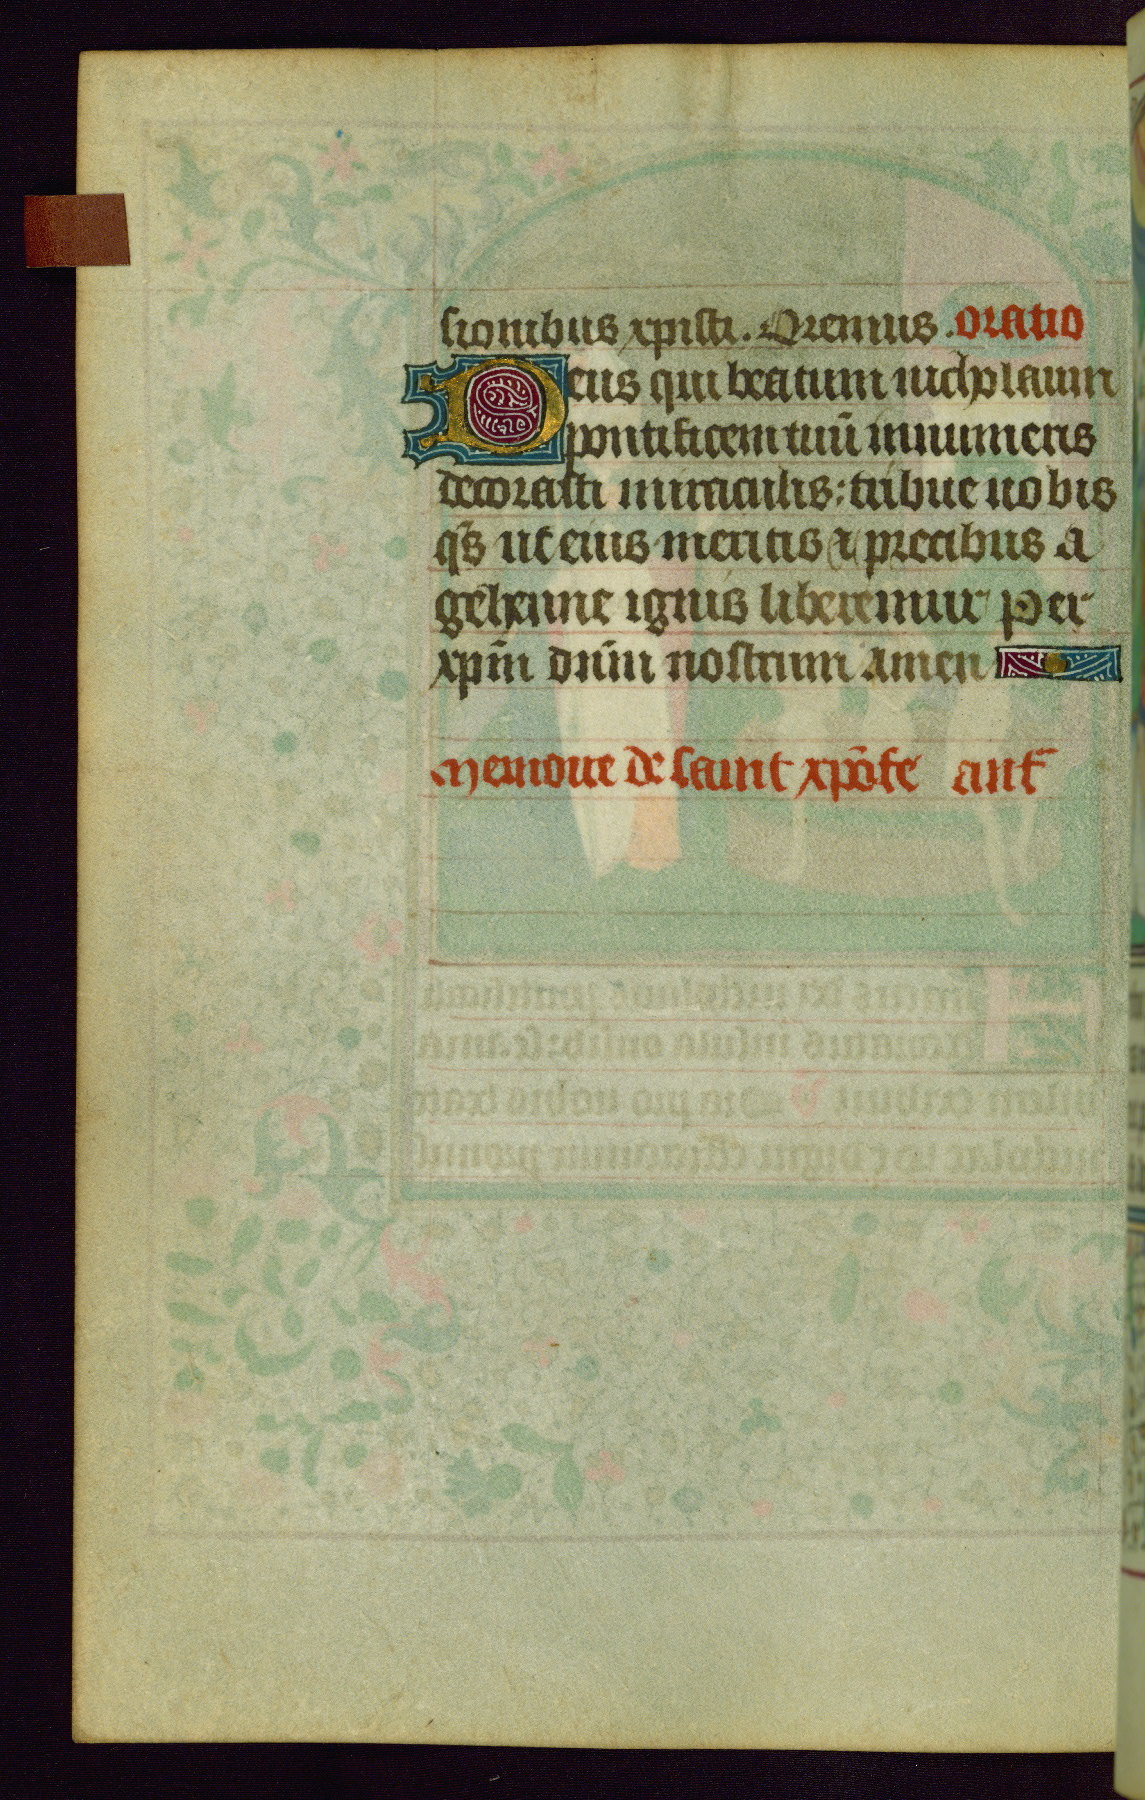 sionibus xpisti. Oremus. oratio
Deus qui beatum nicholaum
pontificem tuū innumeris
decorasti miraculis: tribue nobis
q̄s ut eius meritis ⁊ precibus a
gehenne ignis liberemur per
xpm̄ dn̄m nostrum amen
Memoire de saint xpōfe ant̄